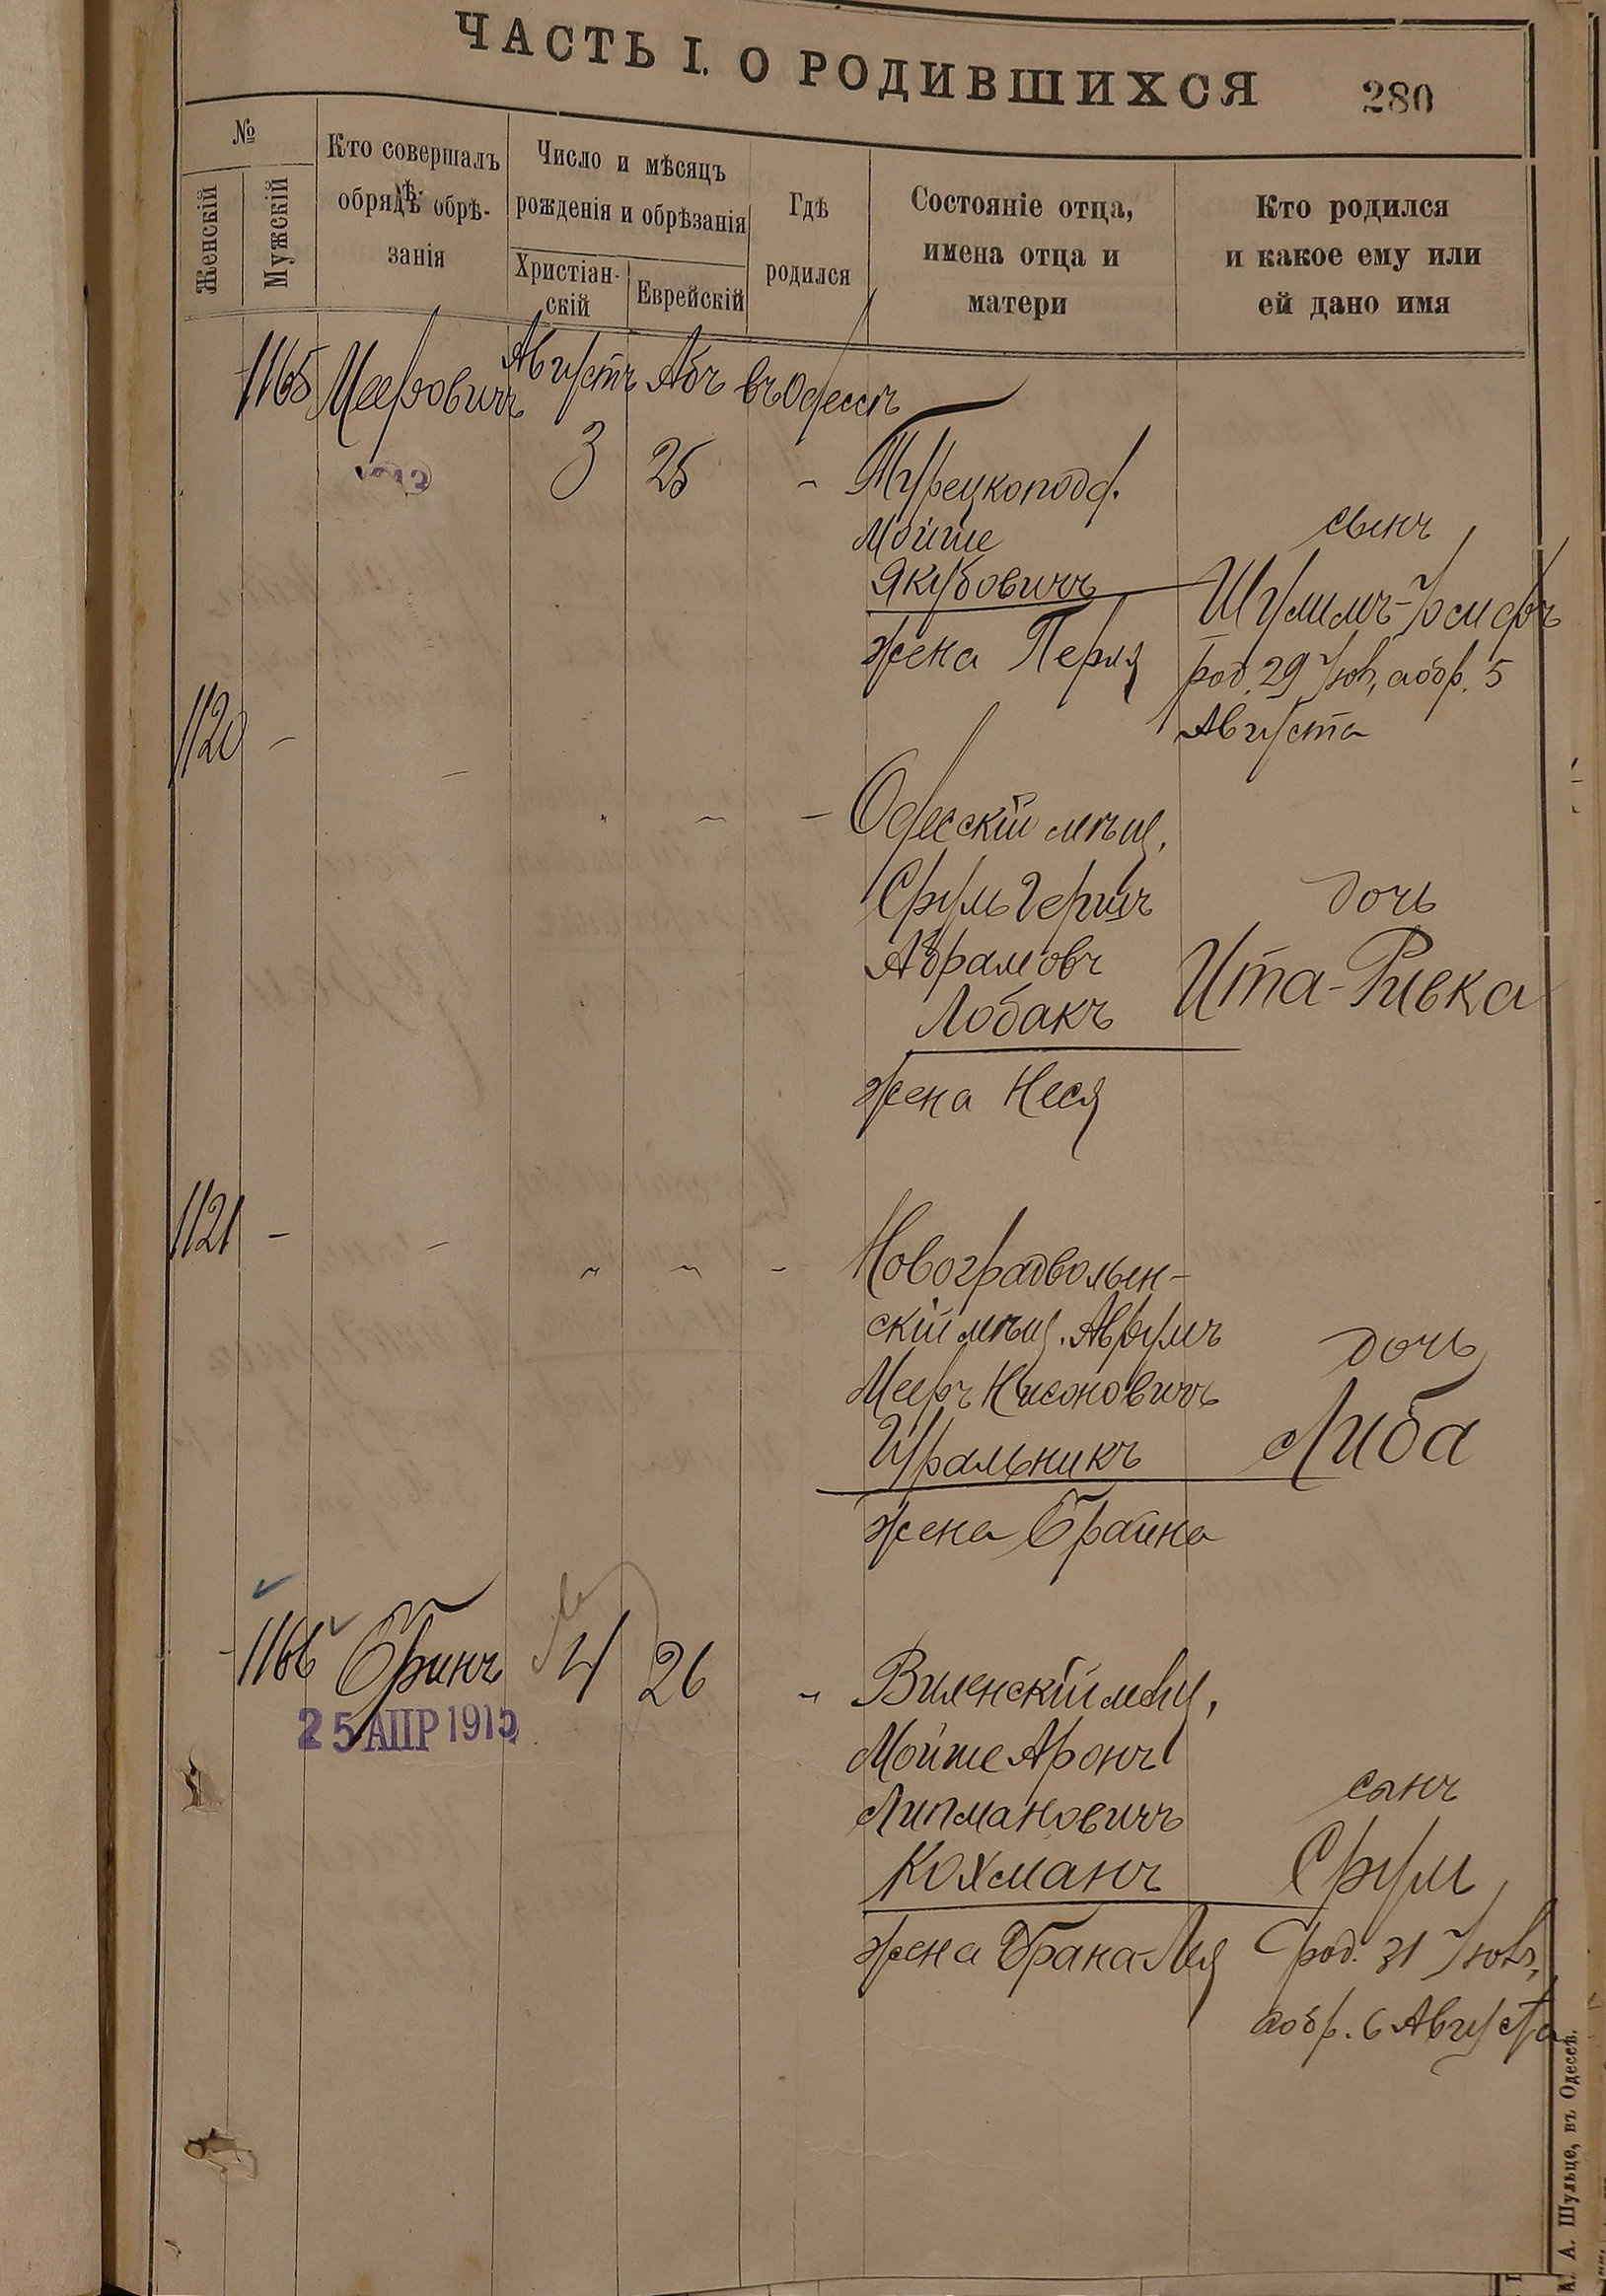 ЧАСТЬ I. О РОДИВШИХСЯ 280
№
Женскій
Мужскій
Кто совершалъ
обрядъ обрѣ-
занія
Число и мѣсяцъ
рожденія и обрѣзанія
Христіан-
скій
Еврейскій
Гдѣ
родился
Состояніе отца,
имена отца и
матери
Кто родился
и какое ему или
ей дано имя
1165 Мееровичъ Августъ Абъ въ Одессѣ
3 25 Турецкопод.
Мойше
Якубовичъ
жена Перля
сынъ
Шулимъ-Іосифъ
род. 29 Іюл, а обр. 5
Августа
1120 -
Одесскій мѣщ.
Сруль Гершъ
Абрамовъ
Лобакъ
жена Неся
дочь
Ита-Ривка
1121 -
Новоградволын-
скій мѣщ. Аврумъ
Мееръ Нисоновичъ
Уральникъ
жена Брайна
дочь
Либа
- 1166 Бринъ 4 26
25 АПР 1915
Виленскій мѣщ.
Мойше Аронъ
Липмановичъ
Кохманъ
жена Брана-Лея
сынъ
Сруль
род. 31 Іюля,
а обр. 6 Августа
А. А. Шульце, въ Одессѣ.